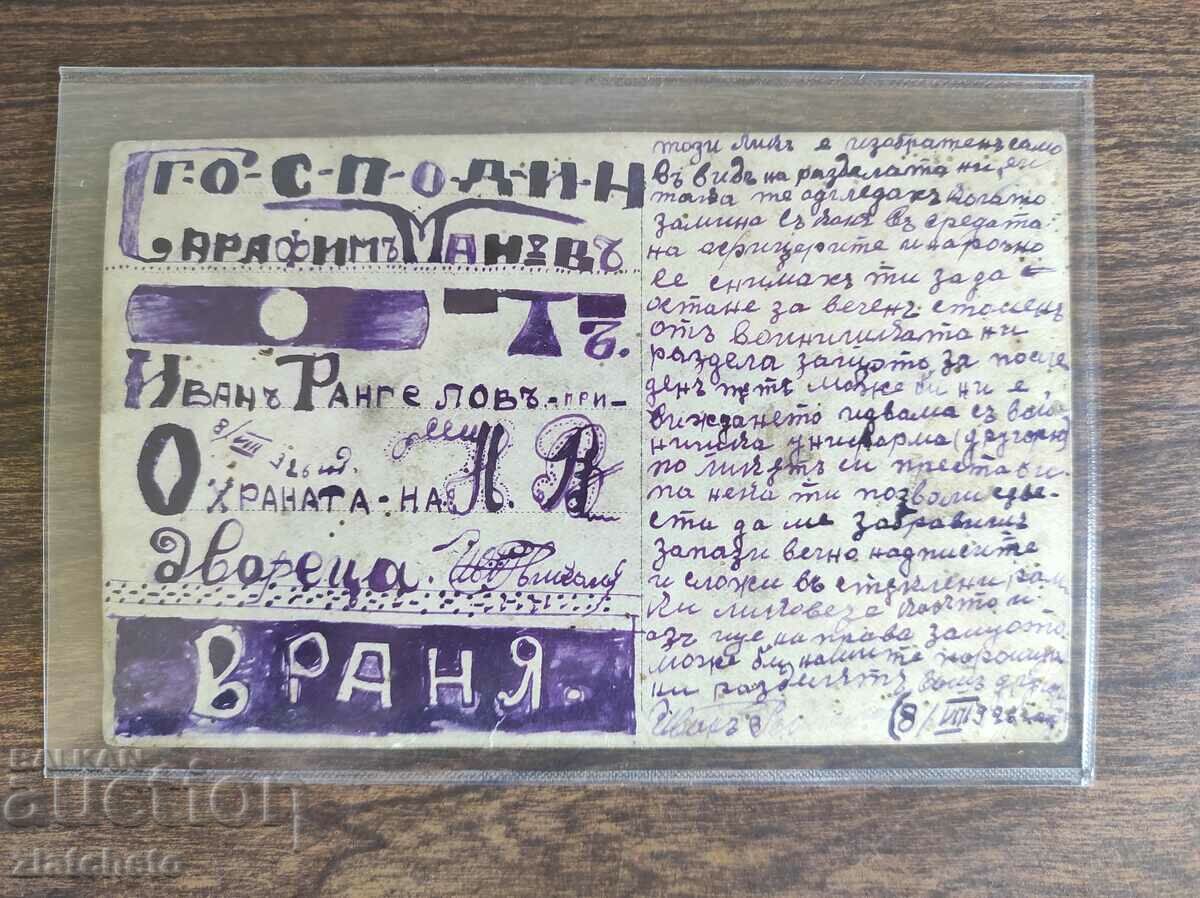 Г-О-С-П-О-Д-И-Н
САРАФИМЪ МАНЪВЪ
О Т Ъ.
ИВАНЪ РАНГЕЛОВЪ-ПРИ-
8/VIII 926 год.
ОХРАНАТА-НА Н. В.
двореца.
ВРАНЯ.
този ликъ е изобратенъ само
въ видъ на разделата ни,
та те одгледахъ когато
замина съ въ средата
на офицерите и нарочно
се снимахъ ти за да
остане за веченъ споменъ
отъ войнишката ни
раздела защото за после
денъ пътъ може би ни е
виждането и двама съ вой
нишка униформа
по ликътъ си преставн
па нека ти позволи
сти да ме забравишъ
запази вечно надписите
и сложи въ стъклени рам
ки ликове а което и
азъ ще направа защото
може би нашите
ни Вашъ
Иванъ 8/VIII 926 год
BALKAN
auction
zlatcheto